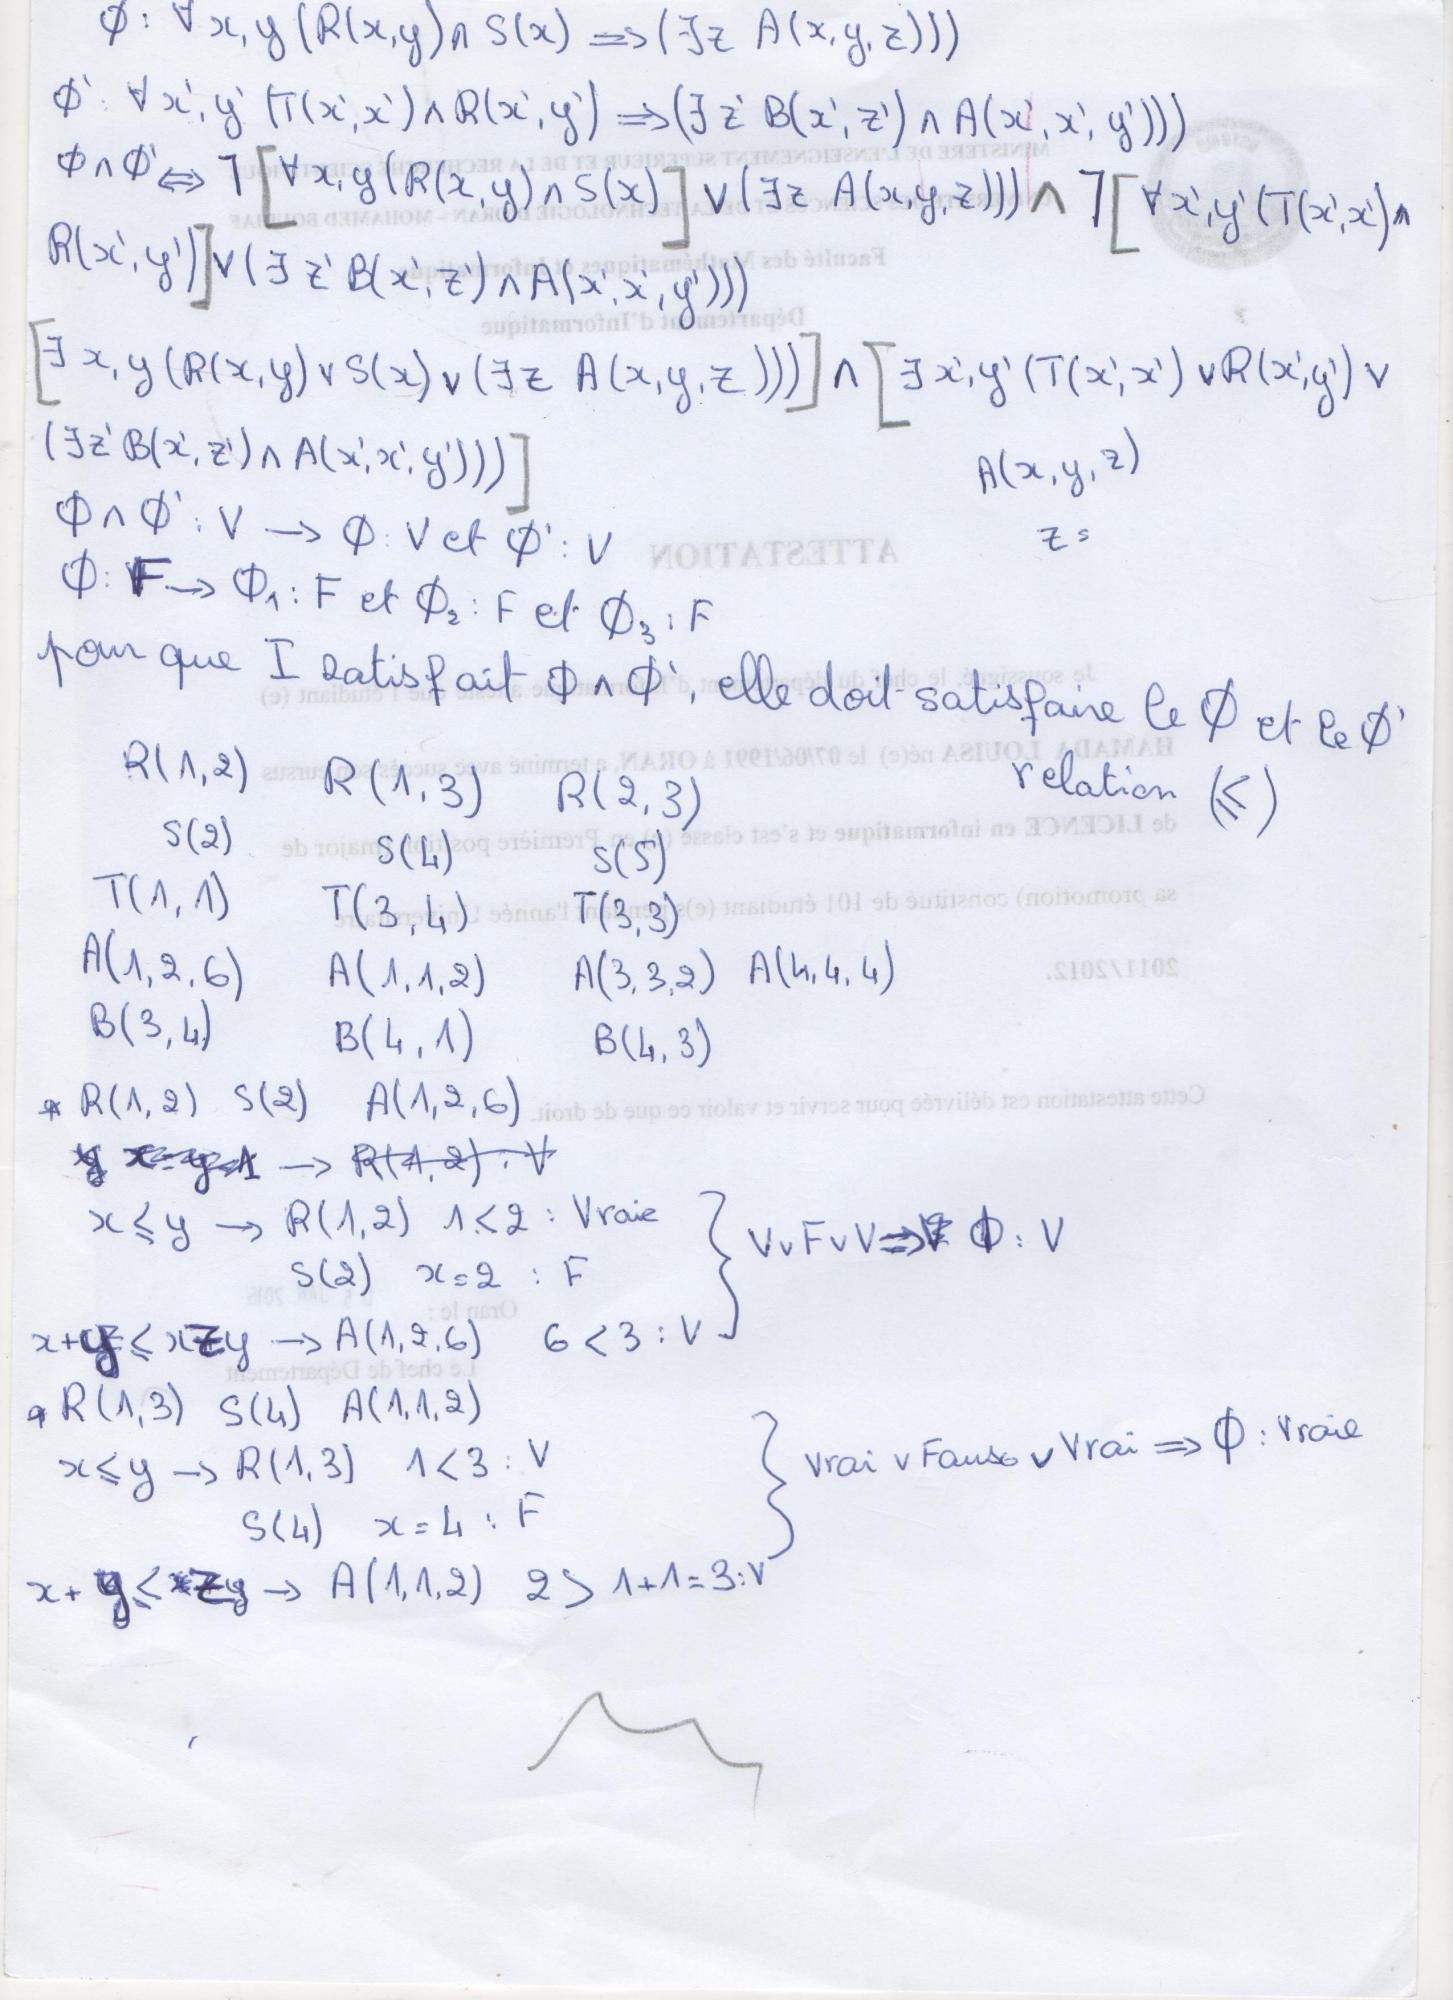 Φ: ∀x,y (R(x,y) ∧ S(x) ⇒ (∃z A(x,y,z)))
Φ': ∀x',y' (T(x',x') ∧ R(x',y') ⇒ (∃z' B(x',z') ∧ A(x',x',y')))
Φ ∧ Φ' ⇔ ⅂ [∀x,y (R(x,y) ∧ S(x)] ∨ (∃z A(x,y,z))) ∧ ⅂ [∀x',y' (T(x',x') ∧
R(x',y')] ∨ (∃z' B(x',z') ∧ A(x',x',y')))
[∃x,y (R(x,y) ∨ S(x) ∨ (∃z A(x,y,z)))] ∧ [∃x',y' (T(x',x') ∨ R(x',y') ∨
(∃z' B(x',z') ∧ A(x',x',y')))]
A(x,y,z)
z =
Φ ∧ Φ' : V → Φ : V et Φ' : V
Φ : F → Φ₁ : F et Φ₂ : F et Φ₃ : F
pour que I satisfait Φ ∧ Φ', elle doit satisfaire le Φ et le Φ'
relation (≤)
R(1,2) R(1,3) R(2,3)
S(2) S(4) S(5)
T(1,1) T(3,4) T(3,3)
A(1,2,6) A(1,1,2) A(3,3,2) A(4,4,4)
B(3,4) B(4,1) B(4,3)
* R(1,2) S(2) A(1,2,6)
→ R(1,2) : V
x ≤ y → R(1,2) 1<2 : Vraie
S(2) x=2 : F
V∨F∨V ⇒ Φ : V
x+y ≤ → A(1,2,6) 6<3 : V
* R(1,3) S(4) A(1,1,2)
x ≤ y → R(1,3) 1<3 : V
S(4) x=4 : F
Vrai ∨ Fausse ∨ Vrai ⇒ Φ : Vraie
x+y ≤ → A(1,1,2) 2> 1+1=3:V
MINISTERE DE L'ENSEIGNEMENT SUPERIEUR ET DE LA RECHERCHE SCIENTIFIQUE
Faculté des Mathématiques et Informatique
Département d'Informatique
ATTESTATION
Je soussigné, le chef du département d'Informatique atteste que l'étudiant (e)
HAMADA LOUISA né(e) le 07/06/1991 à ORAN, a terminé avec succès son cursus
de LICENCE en informatique et s'est classé (e) en Première position (major de
sa promotion) constitué de 101 étudiant (e)s pendant l'année Universitaire
2011/2012.
Cette attestation est délivrée pour servir et valoir ce que de droit.
Oran le :
Le chef de Département